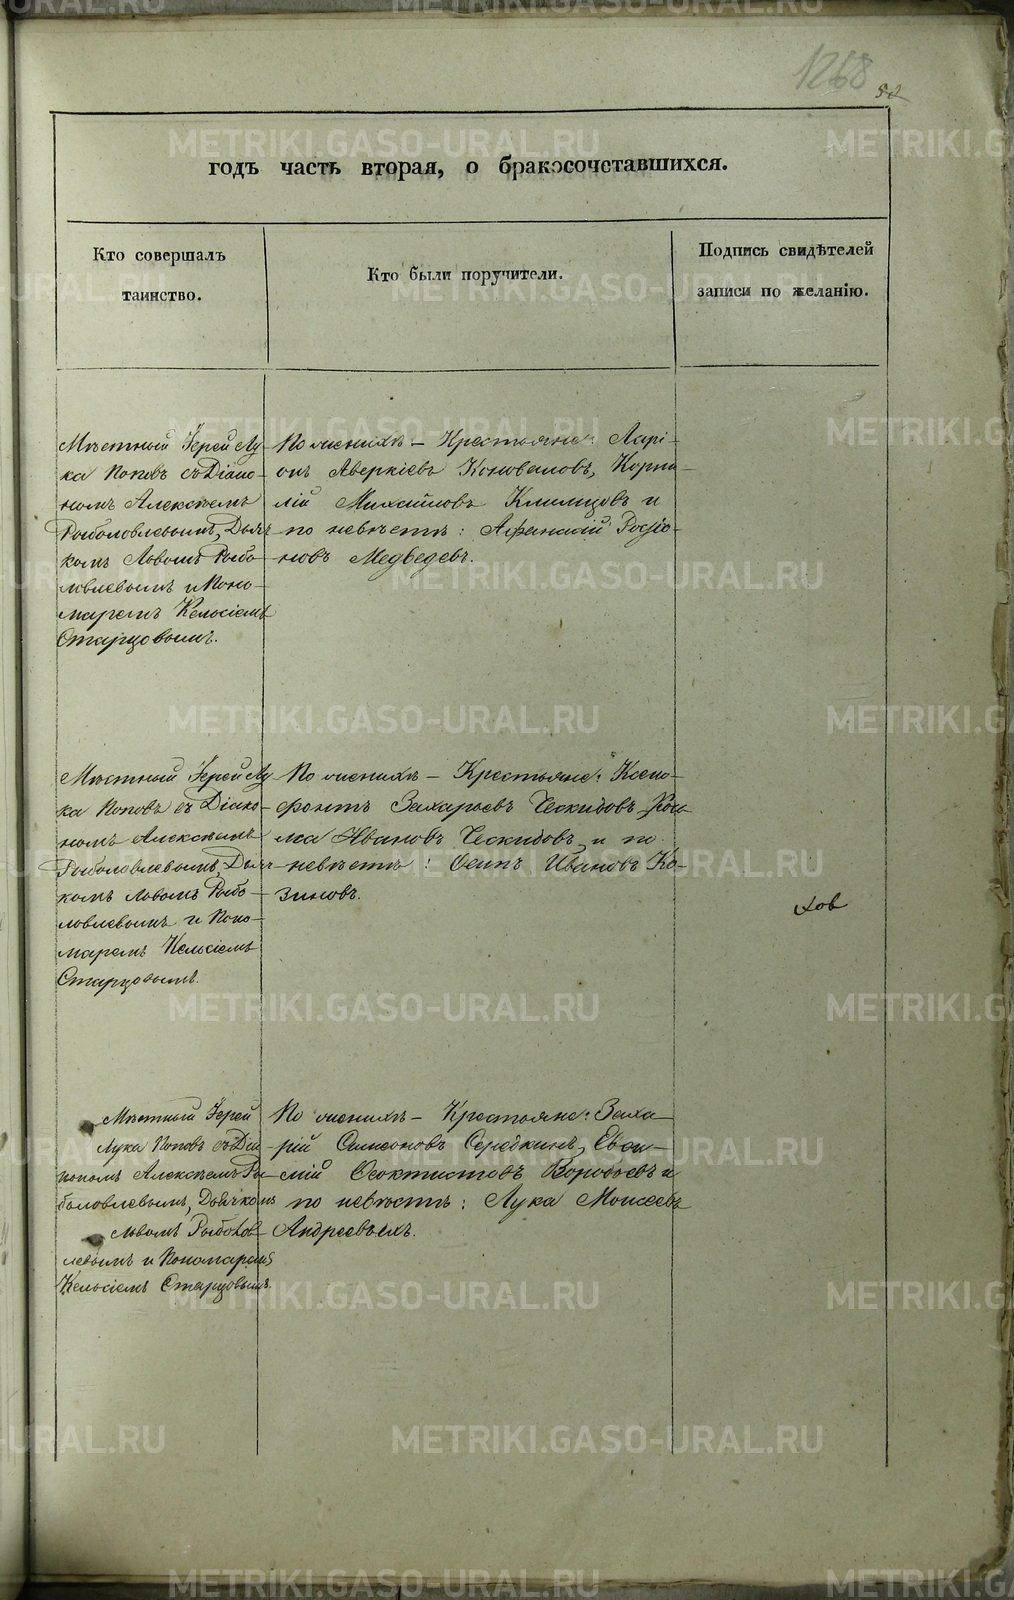 1268
52
годъ часть вторая, о бракосочетавшихся.
Кто совершалъ
таинство.
Кто были поручители.
Подпись свидѣтелей
записи по желанію.
Мѣстный Іерей Лу-
ка Поповъ съ Діако-
номъ Алексѣемъ
Рыболовлевымъ, Дьяч-
комъ Львомъ Рыбо-
ловлевымъ и Поно-
маремъ Кельсіемъ
Старцовымъ.
По женихѣ – Крестьяне: Ларі-
онъ Аверкіевъ Коноваловъ, Корни-
лій Михайловъ Климцовъ и
по невѣстѣ: Афанасій Родіо-
новъ Медведевъ.
Мѣстный Іерей Лу-
ка Поповъ съ Діако-
номъ Алексѣемъ
Рыболовлевымъ, Дьяч-
комъ Львомъ Рыбо-
ловлевымъ и Поно-
маремъ Кельсіемъ
Старцовымъ.
По женихѣ – Крестьяне: Ксено-
фонтъ Захарьевъ Ческидовъ, Кось-
ма Ивановъ Ческидовъ и по
невѣстѣ: Осипъ Ивановъ Ко-
зиновъ.
хов
Мѣстный Іерей
Лука Поповъ съ Діа-
кономъ Алексѣемъ Ры-
боловлевымъ, Дьячкомъ
Львомъ Рыболов-
левымъ и Пономаремъ
Кельсіемъ Старцовымъ.
По женихѣ – Крестьяне: Заха-
рій Симеоновъ Середкинъ, Евѳи-
мій Ѳеоктистовъ Воробьевъ и
по невѣстѣ: Лука Моисеевъ
Андреевыхъ.
METRIKI.GASO-URAL.RU